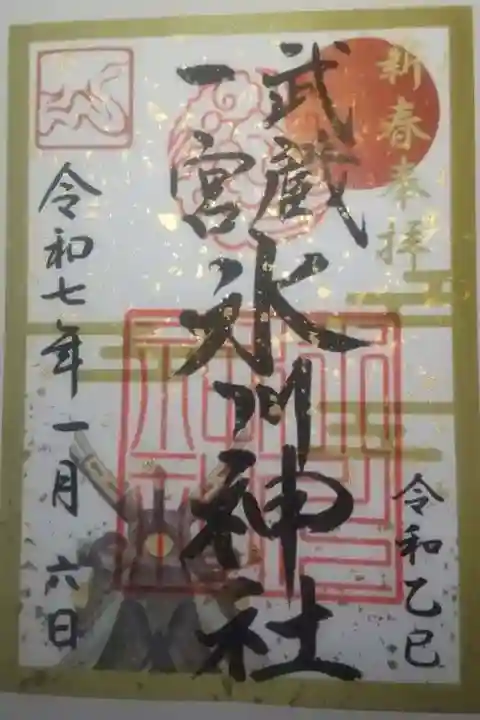 新春奉拝
武蔵
一宮
氷川神社
令和乙巳
令和七年一月六日